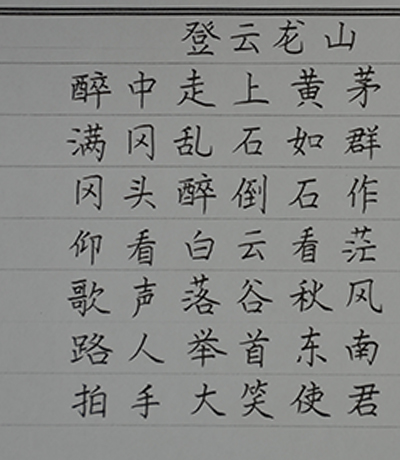 登云龙山
醉中走上黄茅
满冈乱石如群
冈头醉倒石作
仰看白云看茫
歌声落谷秋风
路人举首东南
拍手大笑使君